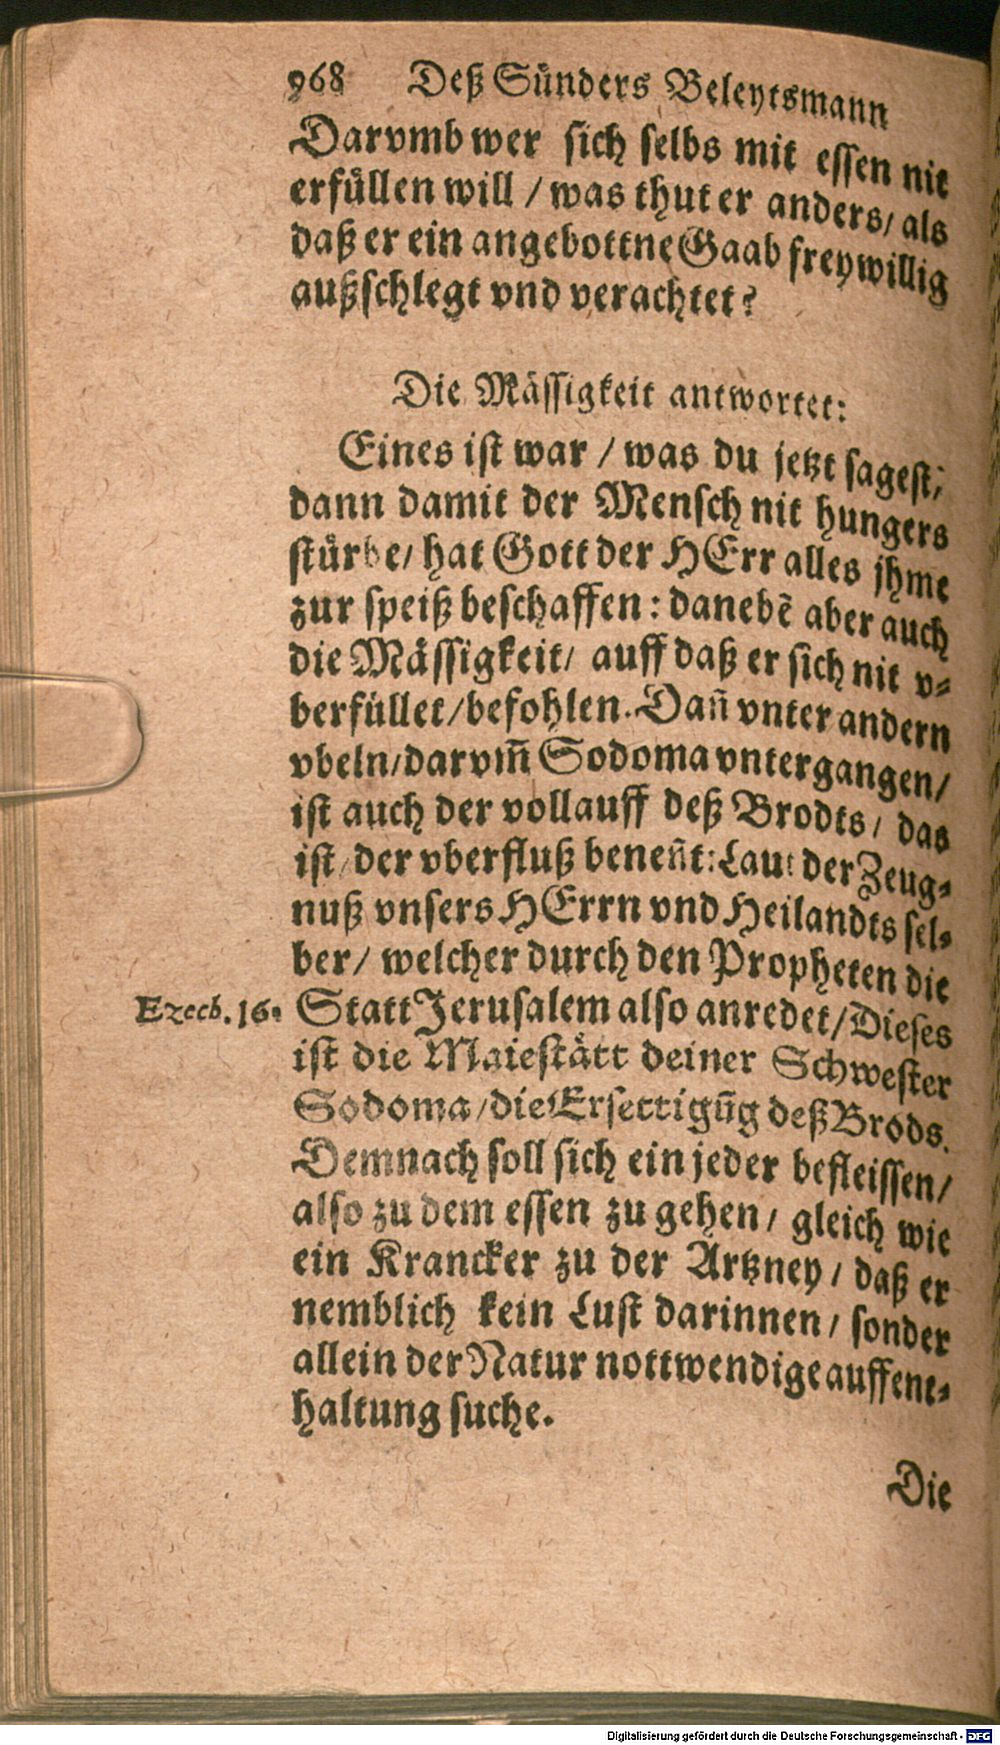 968 Deß Sünders Beleytsmann
Darvmb wer sich selbs mit essen nit
erfüllen will / was thut er anders / als
daß er ein angebottne Gaab freywillig
außschlegt vnd verachtet?
Die Mässigkeit antwortet:
Eines ist war / was du jetzt sagest;
dann damit der Mensch nit hungers
stürbe / hat Gott der HErr alles jhme
zur speiß beschaffen: danebẽ aber auch
die Mässigkeit / auff daß er sich nit v-
berfüllet / befohlen. Dañ vnter andern
vbeln / darvm̃ Sodoma vntergangen /
ist auch der vollauff deß Brodts / das
ist / der vberfluß beneñt: Laut der Zeug-
nuß vnsers HErrn vnd Heilandts sel-
ber / welcher durch den Propheten die
Ezech. 16. Statt Jerusalem also anredet / Dieses
ist die Maiestätt deiner Schwester
Sodoma / die Ersettigũg deß Brods.
Demnach soll sich ein jeder befleissen /
also zu dem essen zu gehen / gleich wie
ein Krancker zu der Artzney / daß er
nemblich kein Lust darinnen / sonder
allein der Natur nottwendige auffent-
haltung suche.
Die
Digitalisierung gefördert durch die Deutsche Forschungsgemeinschaft - DFG